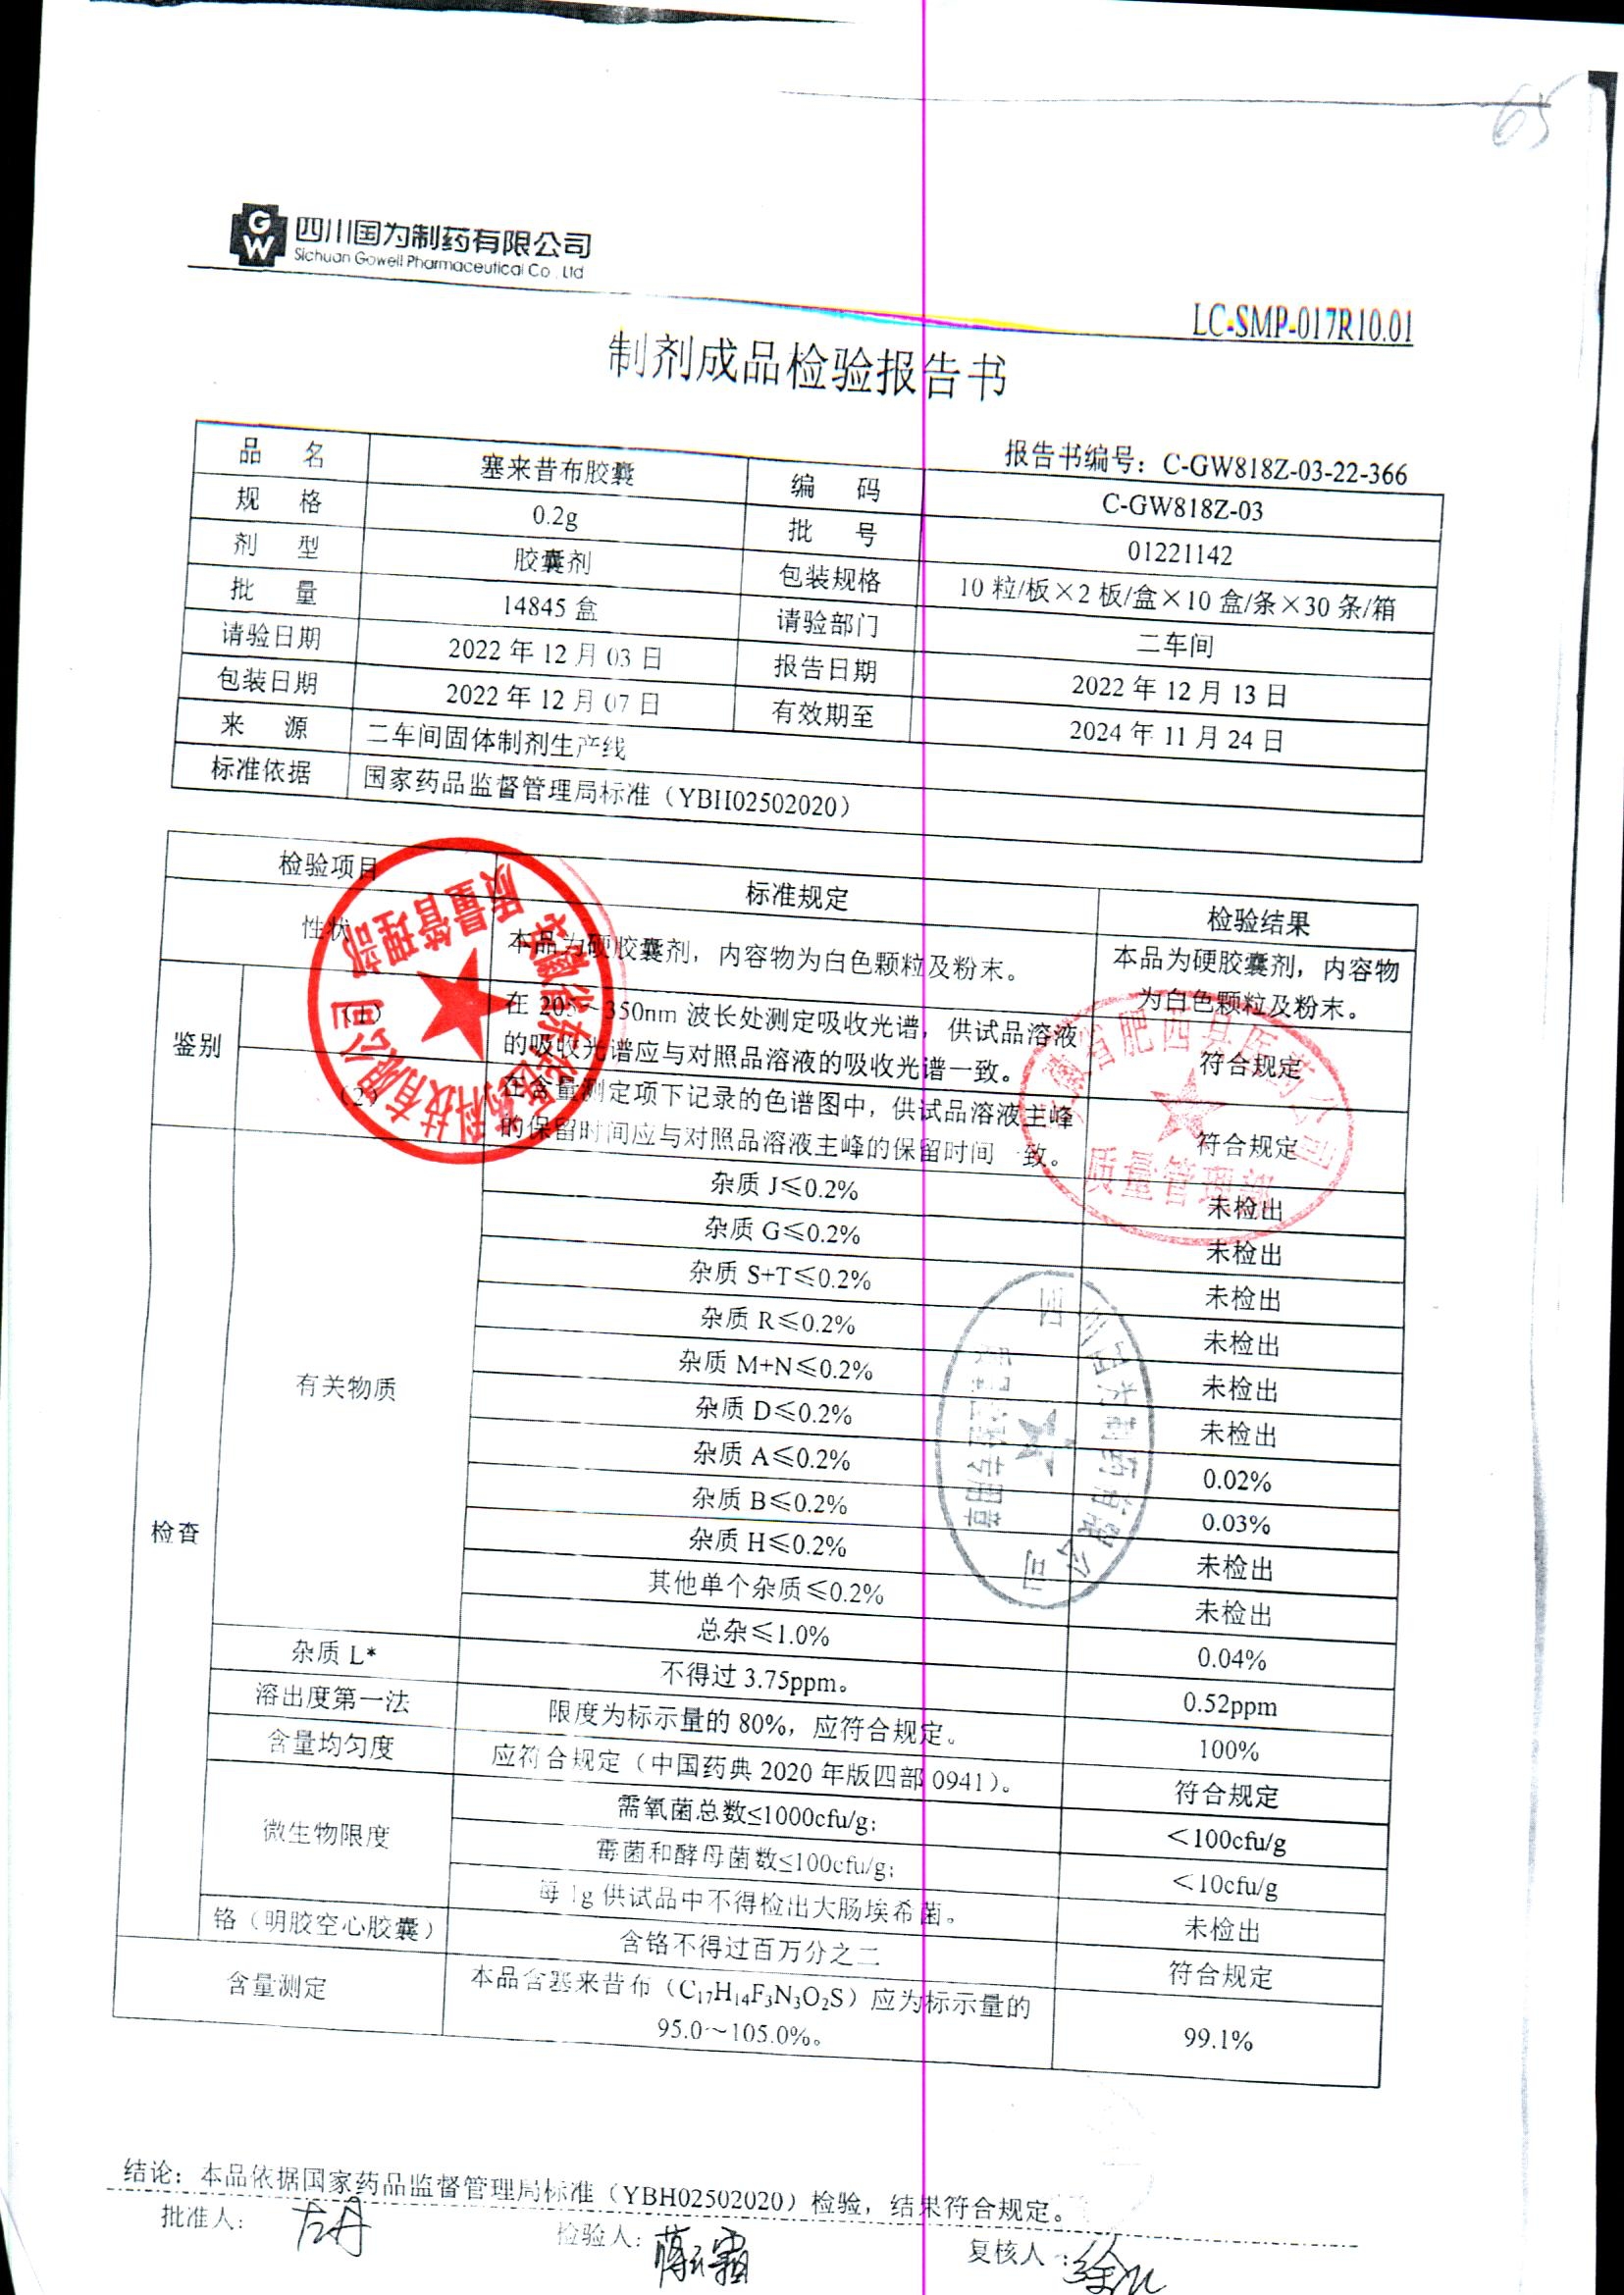 65
GW
四川国为制药有限公司
Sichuan Gowell Pharmaceutical Co., Ltd
LC-SMP-017R10.01
制剂成品检验报告书
报告书编号：C-GW818Z-03-22-366
品 名 塞来昔布胶囊 编 码 C-GW818Z-03
规 格 0.2g 批 号 01221142
剂 型 胶囊剂 包装规格 10 粒/板×2 板/盒×10 盒/条×30 条/箱
批 量 14845 盒 请验部门 二车间
请验日期 2022 年 12 月 03 日 报告日期 2022 年 12 月 13 日
包装日期 2022 年 12 月 07 日 有效期至 2024 年 11 月 24 日
来 源 二车间固体制剂生产线
标准依据 国家药品监督管理局标准（YBH02502020）
检验项目 标准规定 检验结果
性状 本品为硬胶囊剂，内容物为白色颗粒及粉末。 本品为硬胶囊剂，内容物
为白色颗粒及粉末。
鉴别 （1） 在 205～350nm 波长处测定吸收光谱，供试品溶液
的吸收光谱应与对照品溶液的吸收光谱一致。 符合规定
（2） 在含量测定项下记录的色谱图中，供试品溶液主峰
的保留时间应与对照品溶液主峰的保留时间一致。 符合规定
检查 有关物质 杂质 J≤0.2% 未检出
杂质 G≤0.2% 未检出
杂质 S+T≤0.2% 未检出
杂质 R≤0.2% 未检出
杂质 M+N≤0.2% 未检出
杂质 D≤0.2% 未检出
杂质 A≤0.2% 0.02%
杂质 B≤0.2% 0.03%
杂质 H≤0.2% 未检出
其他单个杂质≤0.2% 未检出
总杂≤1.0% 0.04%
杂质 L* 不得过 3.75ppm。 0.52ppm
溶出度第一法 限度为标示量的 80%，应符合规定。 100%
含量均匀度 应符合规定（中国药典 2020 年版四部 0941）。 符合规定
微生物限度 需氧菌总数≤1000cfu/g； ＜100cfu/g
霉菌和酵母菌数≤100cfu/g； ＜10cfu/g
每 1g 供试品中不得检出大肠埃希菌。 未检出
铬（明胶空心胶囊） 含铬不得过百万分之二 符合规定
含量测定 本品含塞来昔布（C₁₇H₁₄F₃N₃O₂S）应为标示量的
95.0～105.0%。 99.1%
质量管理部
安徽省肥西县医药公司
质量管理部
四川国为制药有限公司
质量检验专用章
结论：本品依据国家药品监督管理局标准（YBH02502020）检验，结果符合规定。
批准人： 检验人： 复核人：